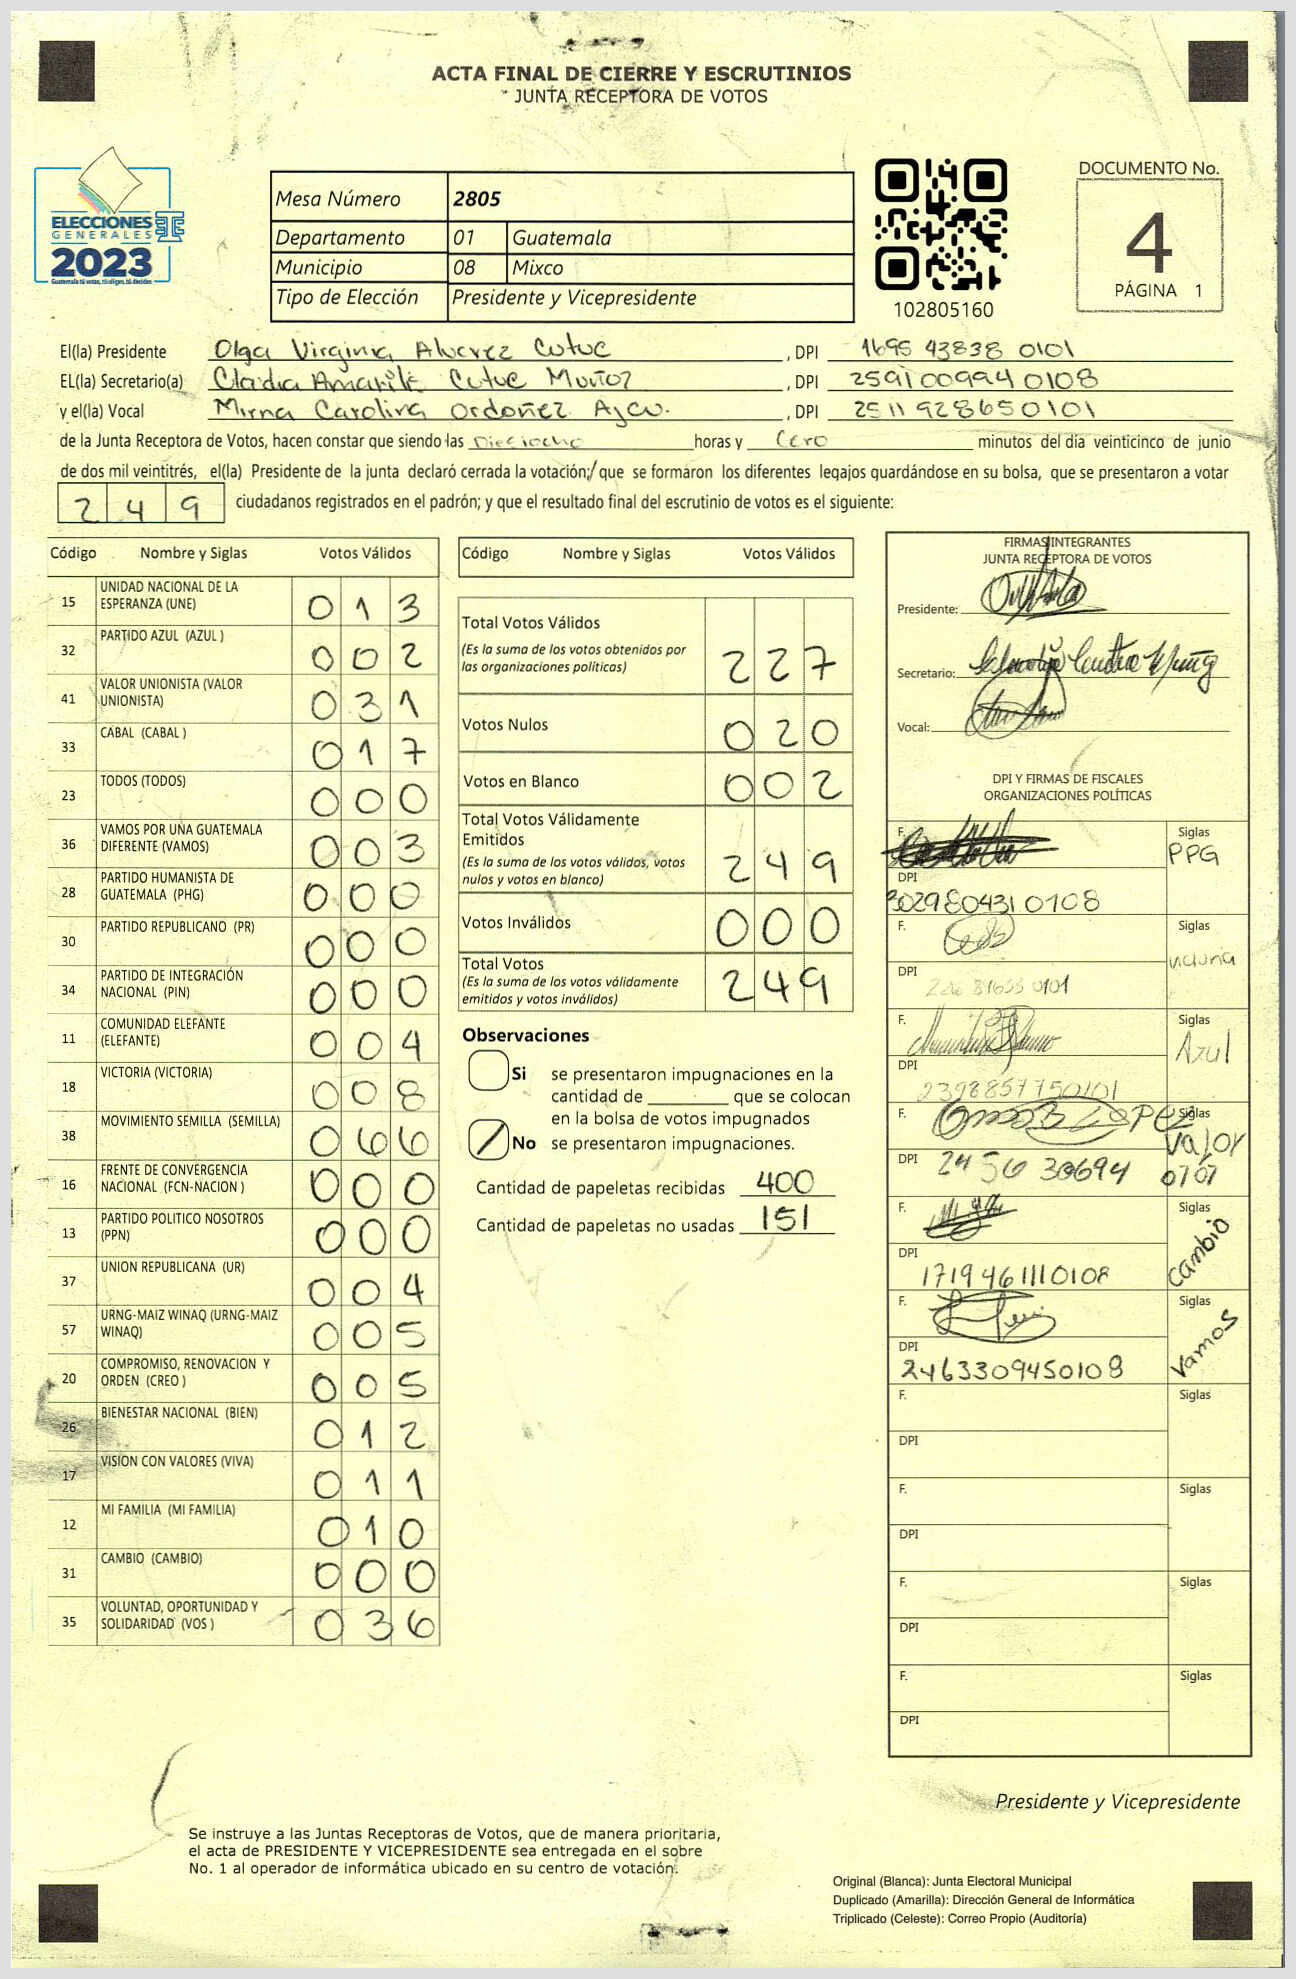 ACTA FINAL DE CIERRE Y ESCRUTINIOS
JUNTA RECEPTORA DE VOTOS
ELECCIONES
GENERALES
2023
Guatemala tú votas, tú eliges, tú decides
Mesa Número 2805
Departamento 01 Guatemala
Municipio 08 Mixco
Tipo de Elección Presidente y Vicepresidente
102805160
DOCUMENTO No.
4
PÁGINA 1
El(la) Presidente Olga Virginia Alvarez Cutuc , DPI 1695 43838 0101
EL(la) Secretario(a) Claudia Amarilé Cutuc Muñoz , DPI 2591009940108
y el(la) Vocal Mirna Carolina Ordoñez Ajcu. , DPI 2511 928650101
de la Junta Receptora de Votos, hacen constar que siendo las Dieciocho horas y Cero minutos del día veinticinco de junio
de dos mil veintitrés, el(la) Presidente de la junta declaró cerrada la votación; que se formaron los diferentes legajos guardándose en su bolsa, que se presentaron a votar
249 ciudadanos registrados en el padrón; y que el resultado final del escrutinio de votos es el siguiente:
Código Nombre y Siglas Votos Válidos
15 UNIDAD NACIONAL DE LA ESPERANZA (UNE) 013
32 PARTIDO AZUL (AZUL ) 002
41 VALOR UNIONISTA (VALOR UNIONISTA) 031
33 CABAL (CABAL ) 017
23 TODOS (TODOS) 000
36 VAMOS POR UNA GUATEMALA DIFERENTE (VAMOS) 003
28 PARTIDO HUMANISTA DE GUATEMALA (PHG) 000
30 PARTIDO REPUBLICANO (PR) 000
34 PARTIDO DE INTEGRACIÓN NACIONAL (PIN) 000
11 COMUNIDAD ELEFANTE (ELEFANTE) 004
18 VICTORIA (VICTORIA) 008
38 MOVIMIENTO SEMILLA (SEMILLA) 066
16 FRENTE DE CONVERGENCIA NACIONAL (FCN-NACION ) 000
13 PARTIDO POLITICO NOSOTROS (PPN) 000
37 UNION REPUBLICANA (UR) 004
57 URNG-MAIZ WINAQ (URNG-MAIZ WINAQ) 005
20 COMPROMISO, RENOVACION Y ORDEN (CREO ) 005
26 BIENESTAR NACIONAL (BIEN) 012
17 VISION CON VALORES (VIVA) 011
12 MI FAMILIA (MI FAMILIA) 010
31 CAMBIO (CAMBIO) 000
35 VOLUNTAD, OPORTUNIDAD Y SOLIDARIDAD (VOS ) 036
Código Nombre y Siglas Votos Válidos
Total Votos Válidos
(Es la suma de los votos obtenidos por
las organizaciones políticas) 227
Votos Nulos 020
Votos en Blanco 002
Total Votos Válidamente
Emitidos
(Es la suma de los votos válidos, votos
nulos y votos en blanco) 249
Votos Inválidos 000
Total Votos
(Es la suma de los votos válidamente
emitidos y votos inválidos) 249
Observaciones
Si se presentaron impugnaciones en la
cantidad de ________ que se colocan
en la bolsa de votos impugnados
No se presentaron impugnaciones.
Cantidad de papeletas recibidas 400
Cantidad de papeletas no usadas 151
FIRMAS INTEGRANTES
JUNTA RECEPTORA DE VOTOS
Presidente:
Secretario:
Vocal:
DPI Y FIRMAS DE FISCALES
ORGANIZACIONES POLÍTICAS
F. Siglas
PPG
DPI
302980431 0108
F. Siglas
DPI
F. Siglas
Azul
DPI
2398857750101
F. Siglas
Valor
DPI 2456 30694 0101
F. Siglas
cambio
DPI
1719461110108
F. Siglas
Vamos
DPI
2463309450108
F. Siglas
DPI
F. Siglas
DPI
F. Siglas
DPI
F. Siglas
DPI
Presidente y Vicepresidente
Se instruye a las Juntas Receptoras de Votos, que de manera prioritaria,
el acta de PRESIDENTE Y VICEPRESIDENTE sea entregada en el sobre
No. 1 al operador de informática ubicado en su centro de votación.
Original (Blanca): Junta Electoral Municipal
Duplicado (Amarilla): Dirección General de Informática
Triplicado (Celeste): Correo Propio (Auditoría)